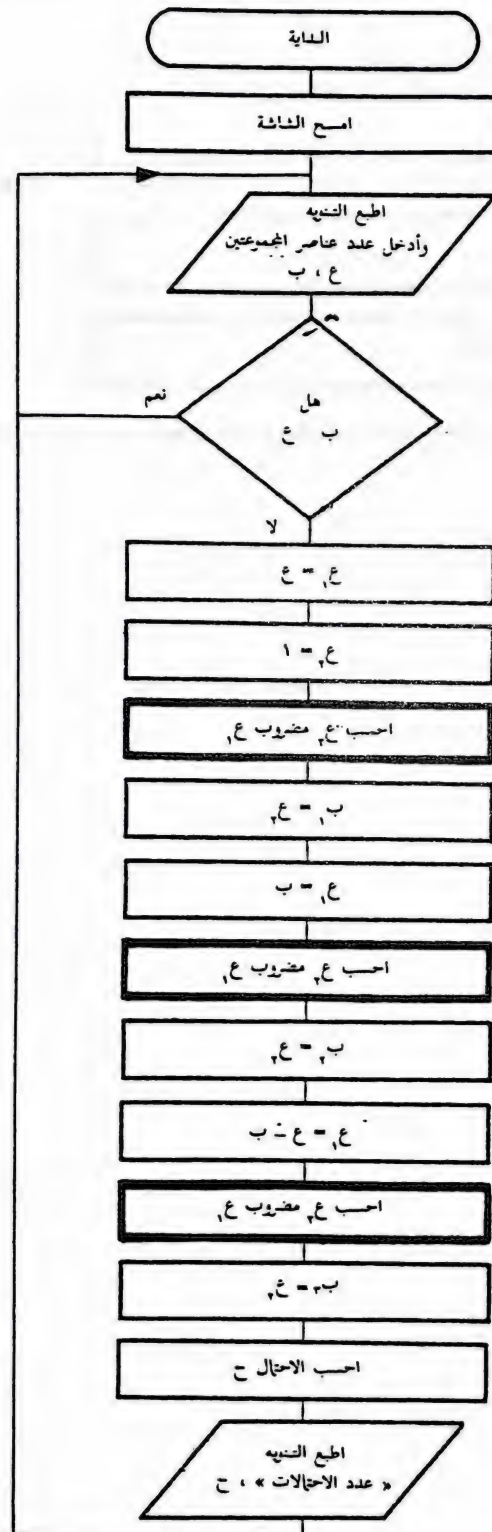 البداية
امسح الشاشة
اطبع التنويه
وأدخل عدد عناصر المجموعتين
ع ، ب
هل
ب ع
نعم
لا
ع₁ = ع
ع₂ = ١
احسب ع₂ مضروب ع₁
ب₁ = ع₂
ع₁ = ب
احسب ع₂ مضروب ع₁
ب₂ = ع₂
ع₁ = ع - ب
احسب ع₂ مضروب ع₁
ب₣ = ع₂
احسب الاحتمال ح
اطبع التنويه
« عدد الاحتمالات » ، ح